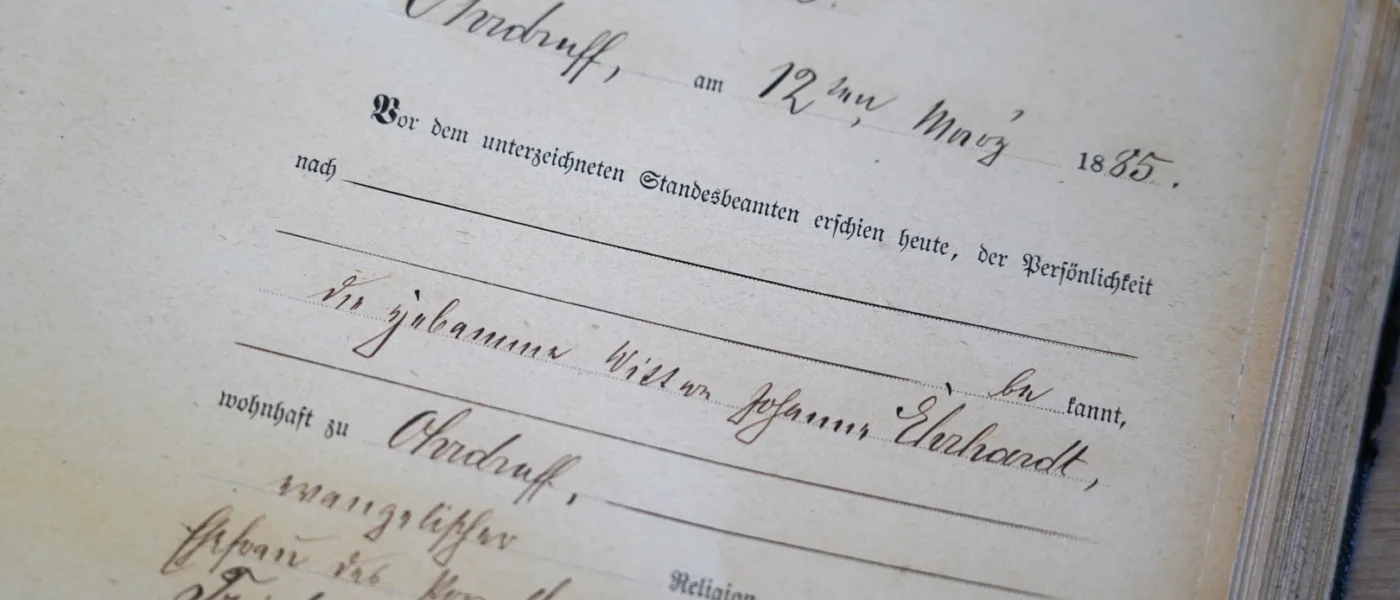 Ohrdruff, am 12ten März 1885.
Vor dem unterzeichneten Standesbeamten erschien heute, der Persönlichkeit
nach
be kannt,
die Hebamme Wittwe Johanne Ehrhardt,
wohnhaft zu Ohrdruff,
evangelischer Religion
Ehefrau des